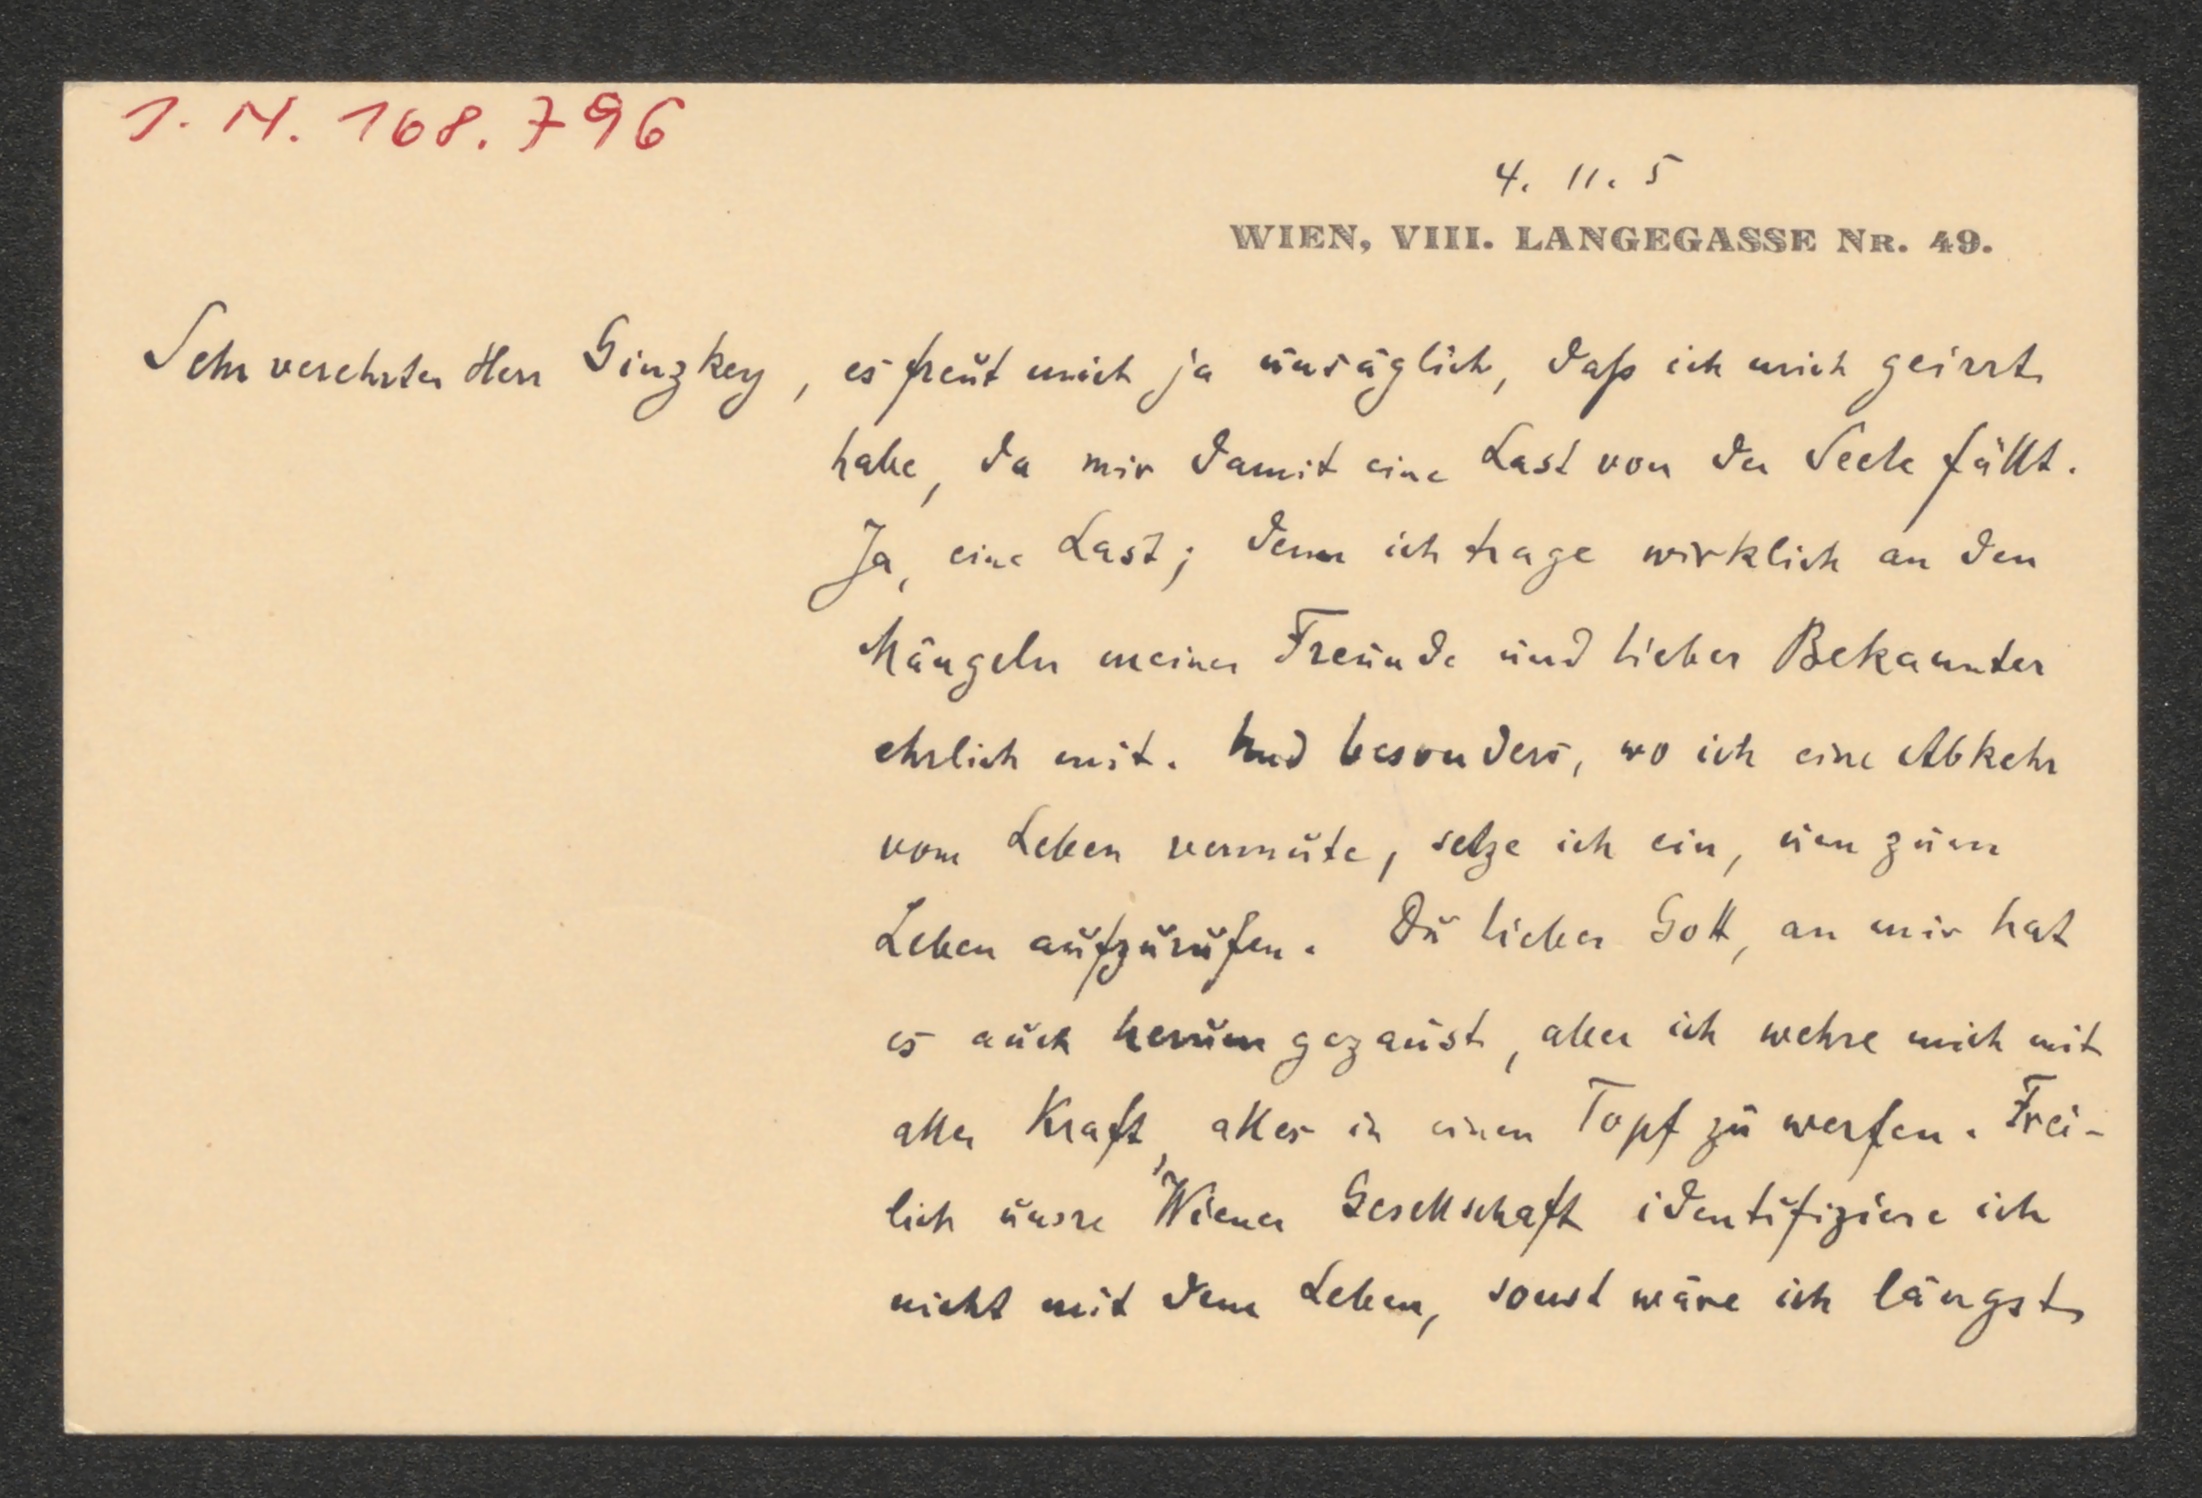 I. N. 168.796
4. 11. 5
WIEN, VIII. LANGEGASSE NR. 49.
Sehr verehrter Herr Ginzkey, es freut mich ja unsäglich, daß ich mich geirrt
habe, da mir damit eine Last von der Seele fällt.
Ja, eine Last; denn ich trage wirklich an den
Mängeln meiner Freunde und lieber Bekannter
ehrlich mit. Und besonders, wo ich eine Abkehr
vom Leben vermute, setze ich ein, um zum
Leben aufzurufen. Du lieber Gott, an mir hat
es auch herumgezaust, aber ich wehre mich mit
aller Kraft, alles in einen Topf zu werfen. Frei-
lich unsre Wiener Gesellschaft identifiziere ich
nicht mit dem Leben, sonst wäre ich längst